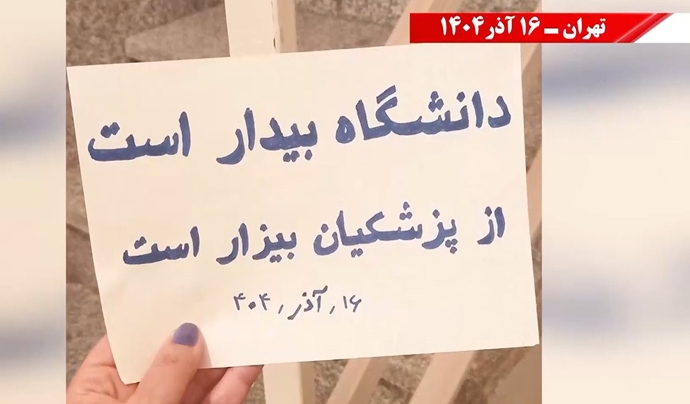 تهران ــ ۱۶ آذر ۱۴۰۴
دانشگاه بیدار است
از پزشکیان بیزار است
۱۶٫ آذر٫ ۴۰۴